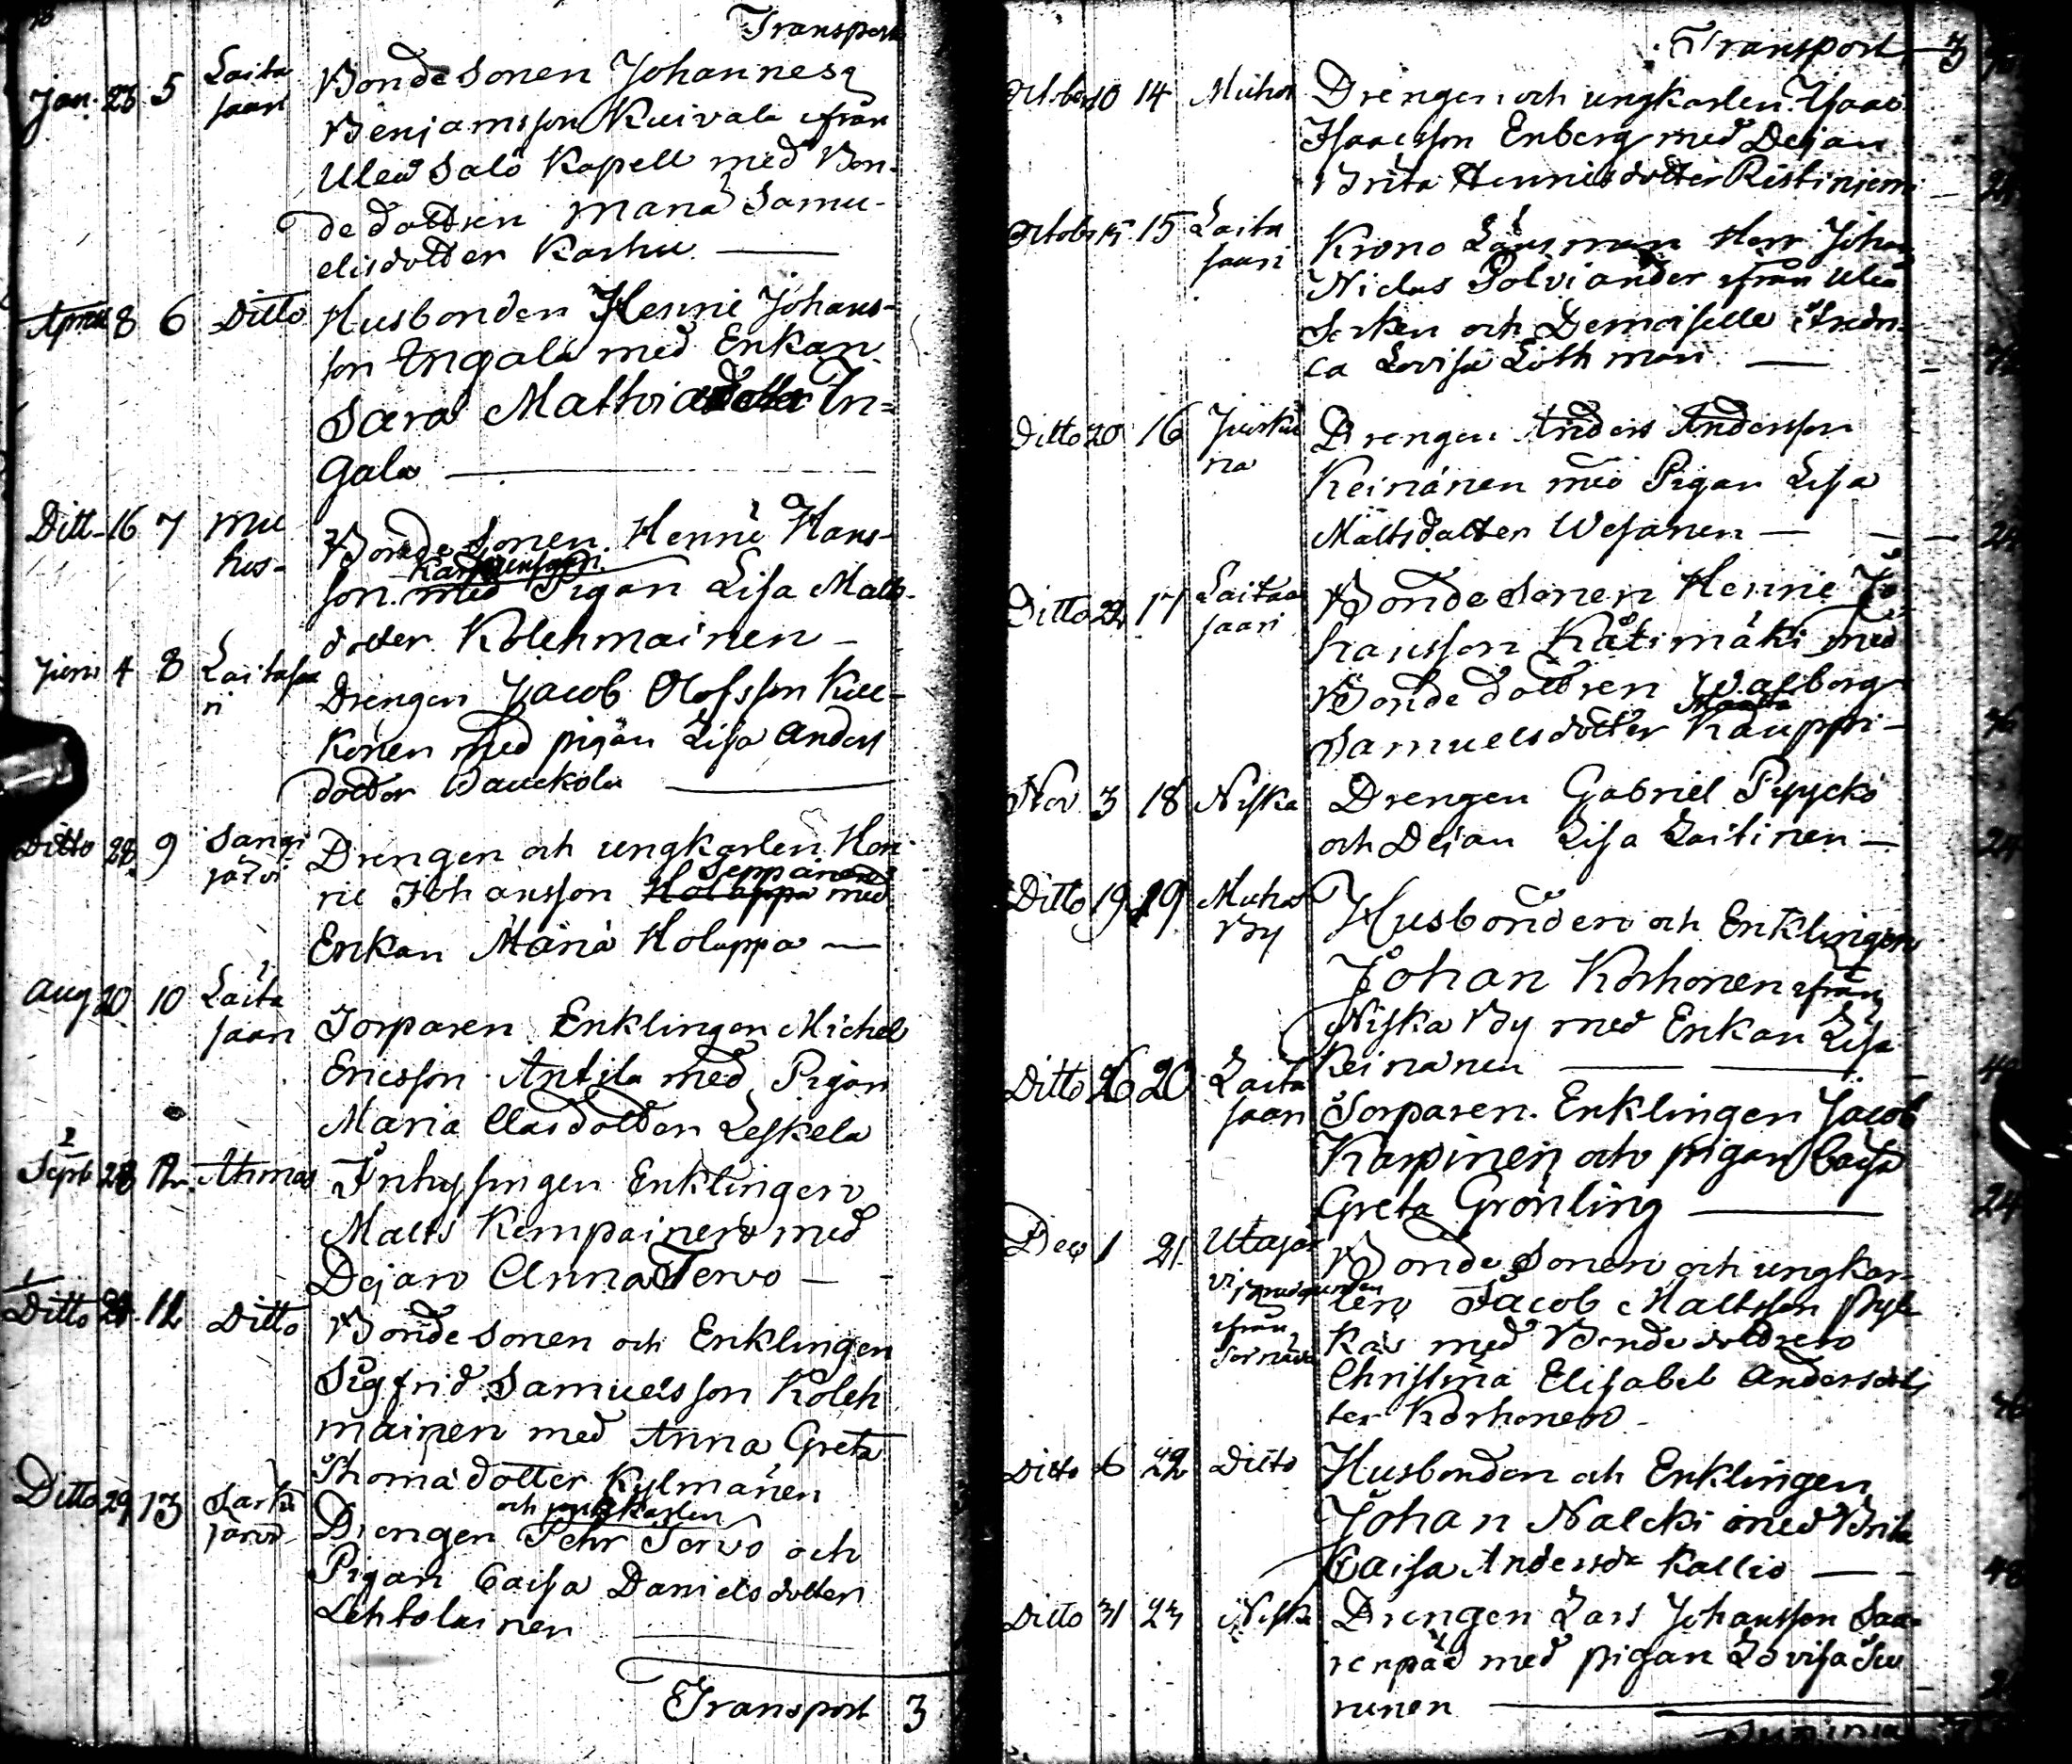 Transport
Jan. 23 5 Laita Bonde Sonen Johannes
saari Benjamsson Kuivala ifrån
Uleå Salo Kapell med Bon-
de dottren Maria Samu-
elisdotter Karhu
April 8 6 Ditto Husbonden Henric Johans-
son Ingala med Enkan
Sara Mathiadotter In=
gala
Ditt- 16 7 Mu Bonde Sonen Henric Hans-
hos-
son med Pigan Lisa Matts-
dotter Kolehmainen
Juni 4 8 Laitasaa Drengen Jacob Olofsson Kuc-
ri konen med pigan Lisa Anders
dotter Wauckola
Ditto 28 9 Sangi Drengen och ungkarlen Hen
järvi Seppänen
ric Johansson Holappa med
Enkan Maria Holappa
Aug 20 10 Laita
saari Torparen Enklingen Michel
Ericsson Antila med Pigan
Maria Clasdotter Leskela
2
Septb 28 Ahmas Inhysingen Enklingen
Matts Kempainen med
Dejan Anna Tervo
1
Ditto 12 Ditto Bonde Sonen och Enklingen
Sigfrid Samuelsson Koleh
mainen med Anna Greta
Thomadotter Kylmänen
Ditto 29 13 Särki och ungkarlen
järvi Drengen Pehr Tervo och
Pigan Caisa Danielsdotter
Lehtolainen
Transport 3
Transport 3
October 10 14 Muhos Drengen och ungkarlen Isaac
Isaacsson Enberg med Dejan
Brita Hennisdotter Ristinjemi
Octobr 15 15 Laita Krono Länsman Herr Johan
saari Niclas Polviander ifrån Uleå
Socken och Demoiselle Fredri-
ca Lovisa Lithman
Ditto 20 16 Juorku Drengen Anders Andersson
na Keinänen med Pigan Lisa
Mattsdotter Wesanen
Ditto 22 17 Laitaa Bonde Sonen Henric Jo
saari hansson Kätimäki med
Bonde dottren Walborg
Maria
Samuelsdotter Kauppi
Nov 3 18 Niska Drengen Gabriel Pyycko
och Dejan Lisa Laitinen 24
Ditto 19 19 Muhos Husbonden och Enklingen
By Johan Korhonen ifrån
Niska By med Enkan Lisa
Keinänen
Ditto 26 20 Laita Torparen Enklingen Jacob
saari Karpinen och pigan Caisa
Greta Grönling 24
Dec 1 21 Utajär Bonde Sonen och ungkar-
vi
len Jacob Mattsson Pyl
ifrån kas med Bonde dottren
Christina Elisabet Andersdot
ter Korhonen
Ditto 6 22 Ditto Husbonden och Enklingen
Johan Nalcki med Brita
Caisa Andersdr Kallio 48
Ditto 31 23 Niska Drengen Lars Johansson Saa-
renpää med pigan Lovisa Su
runen